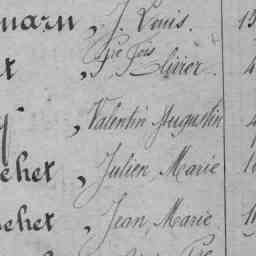 marn, J. Louis. 15
t, Pre Fois Olivier. 4
, Valentin Augustin 4
chet, Julien Marie 1
chet, Jean Marie 1